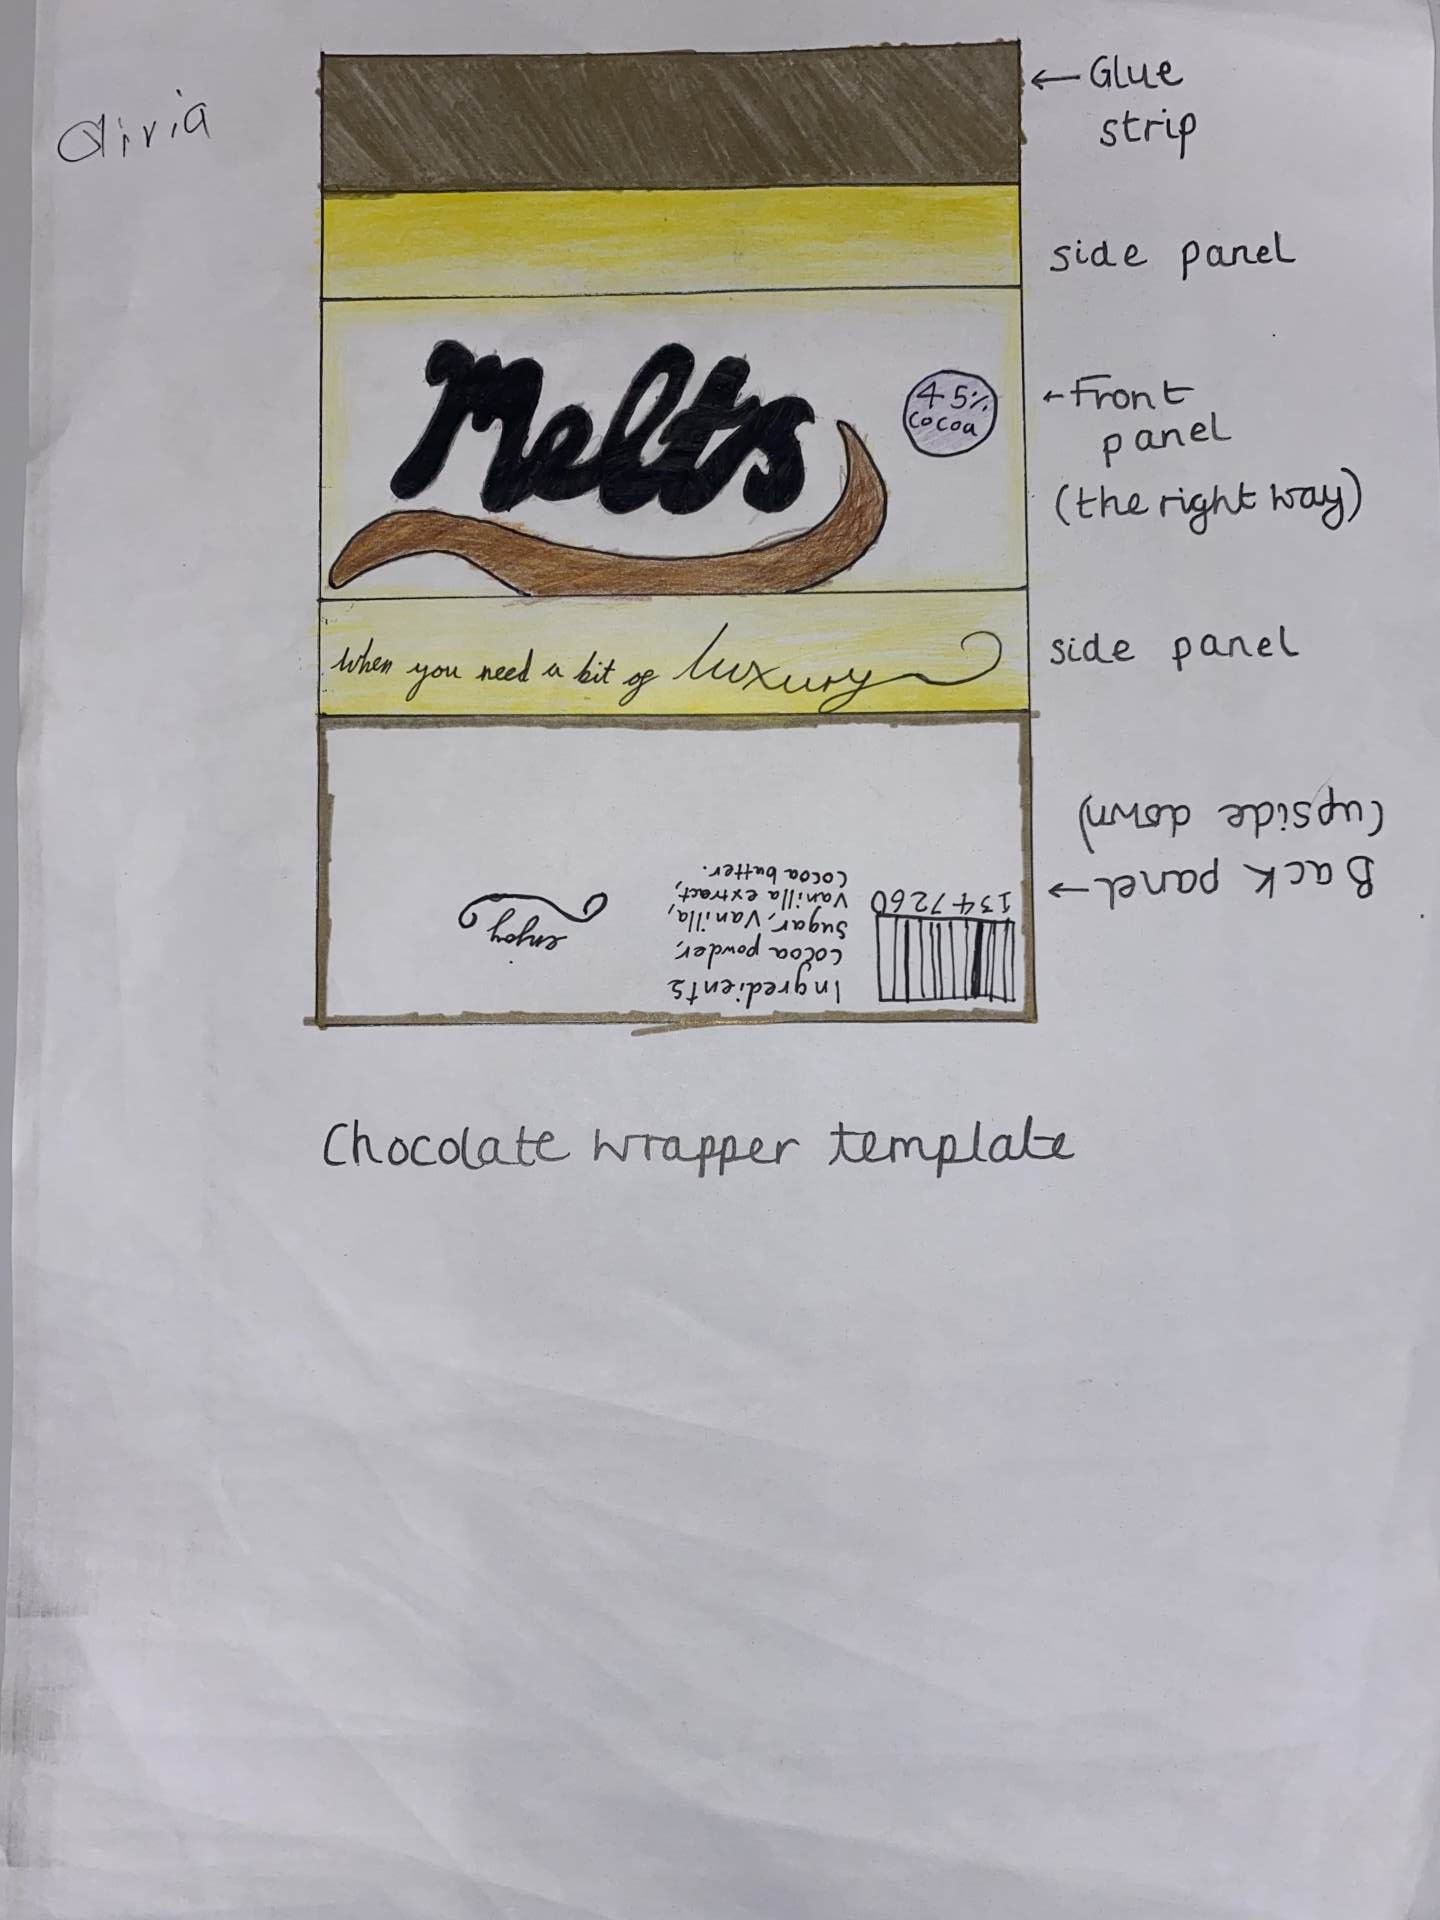 Olivia
← Glue
strip
side panel
Melts
45%
cocoa
← Front
panel
(the right way)
when you need a bit of luxury
side panel
Back panel →
(upside down)
1347260
Ingredients
Cocoa powder,
Sugar, Vanilla,
Vanilla extract,
Cocoa butter.
enjoy
Chocolate wrapper template